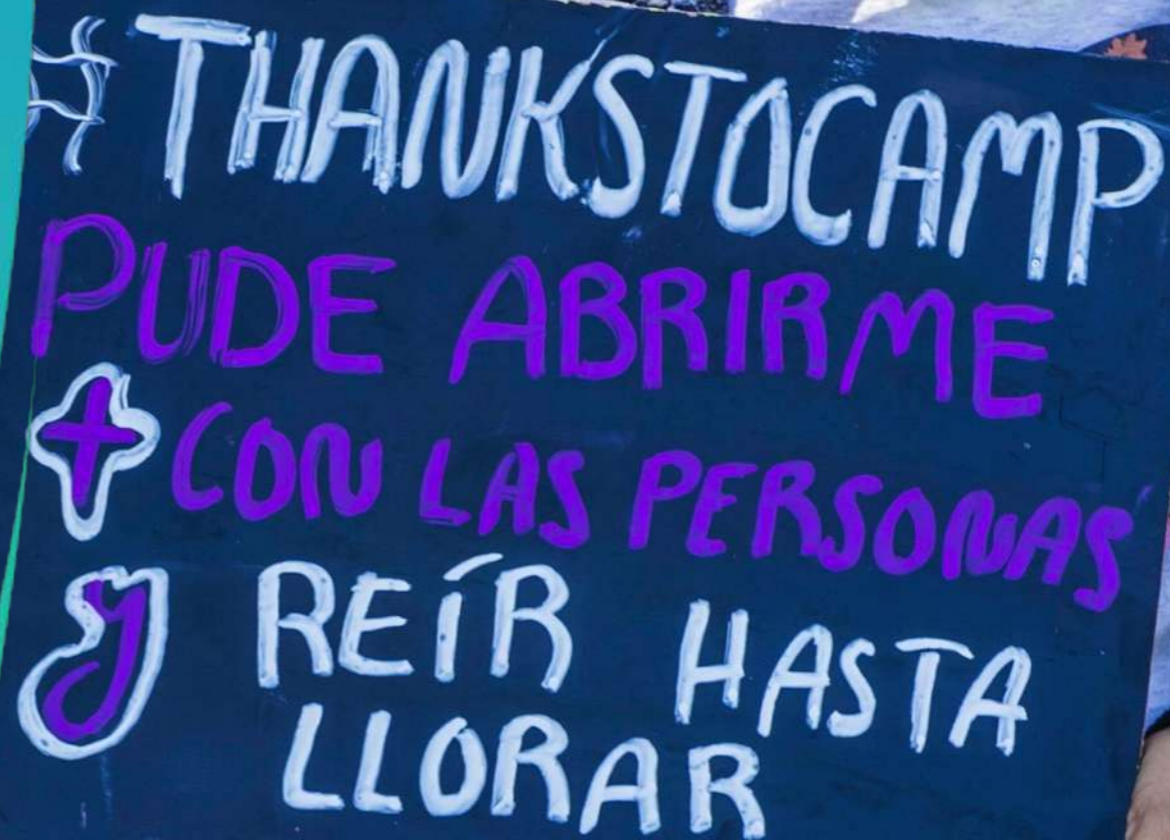 #THANKSTOCAMP
PUDE ABRIRME
+ CON LAS PERSONAS
Y REÍR HASTA
LLORAR